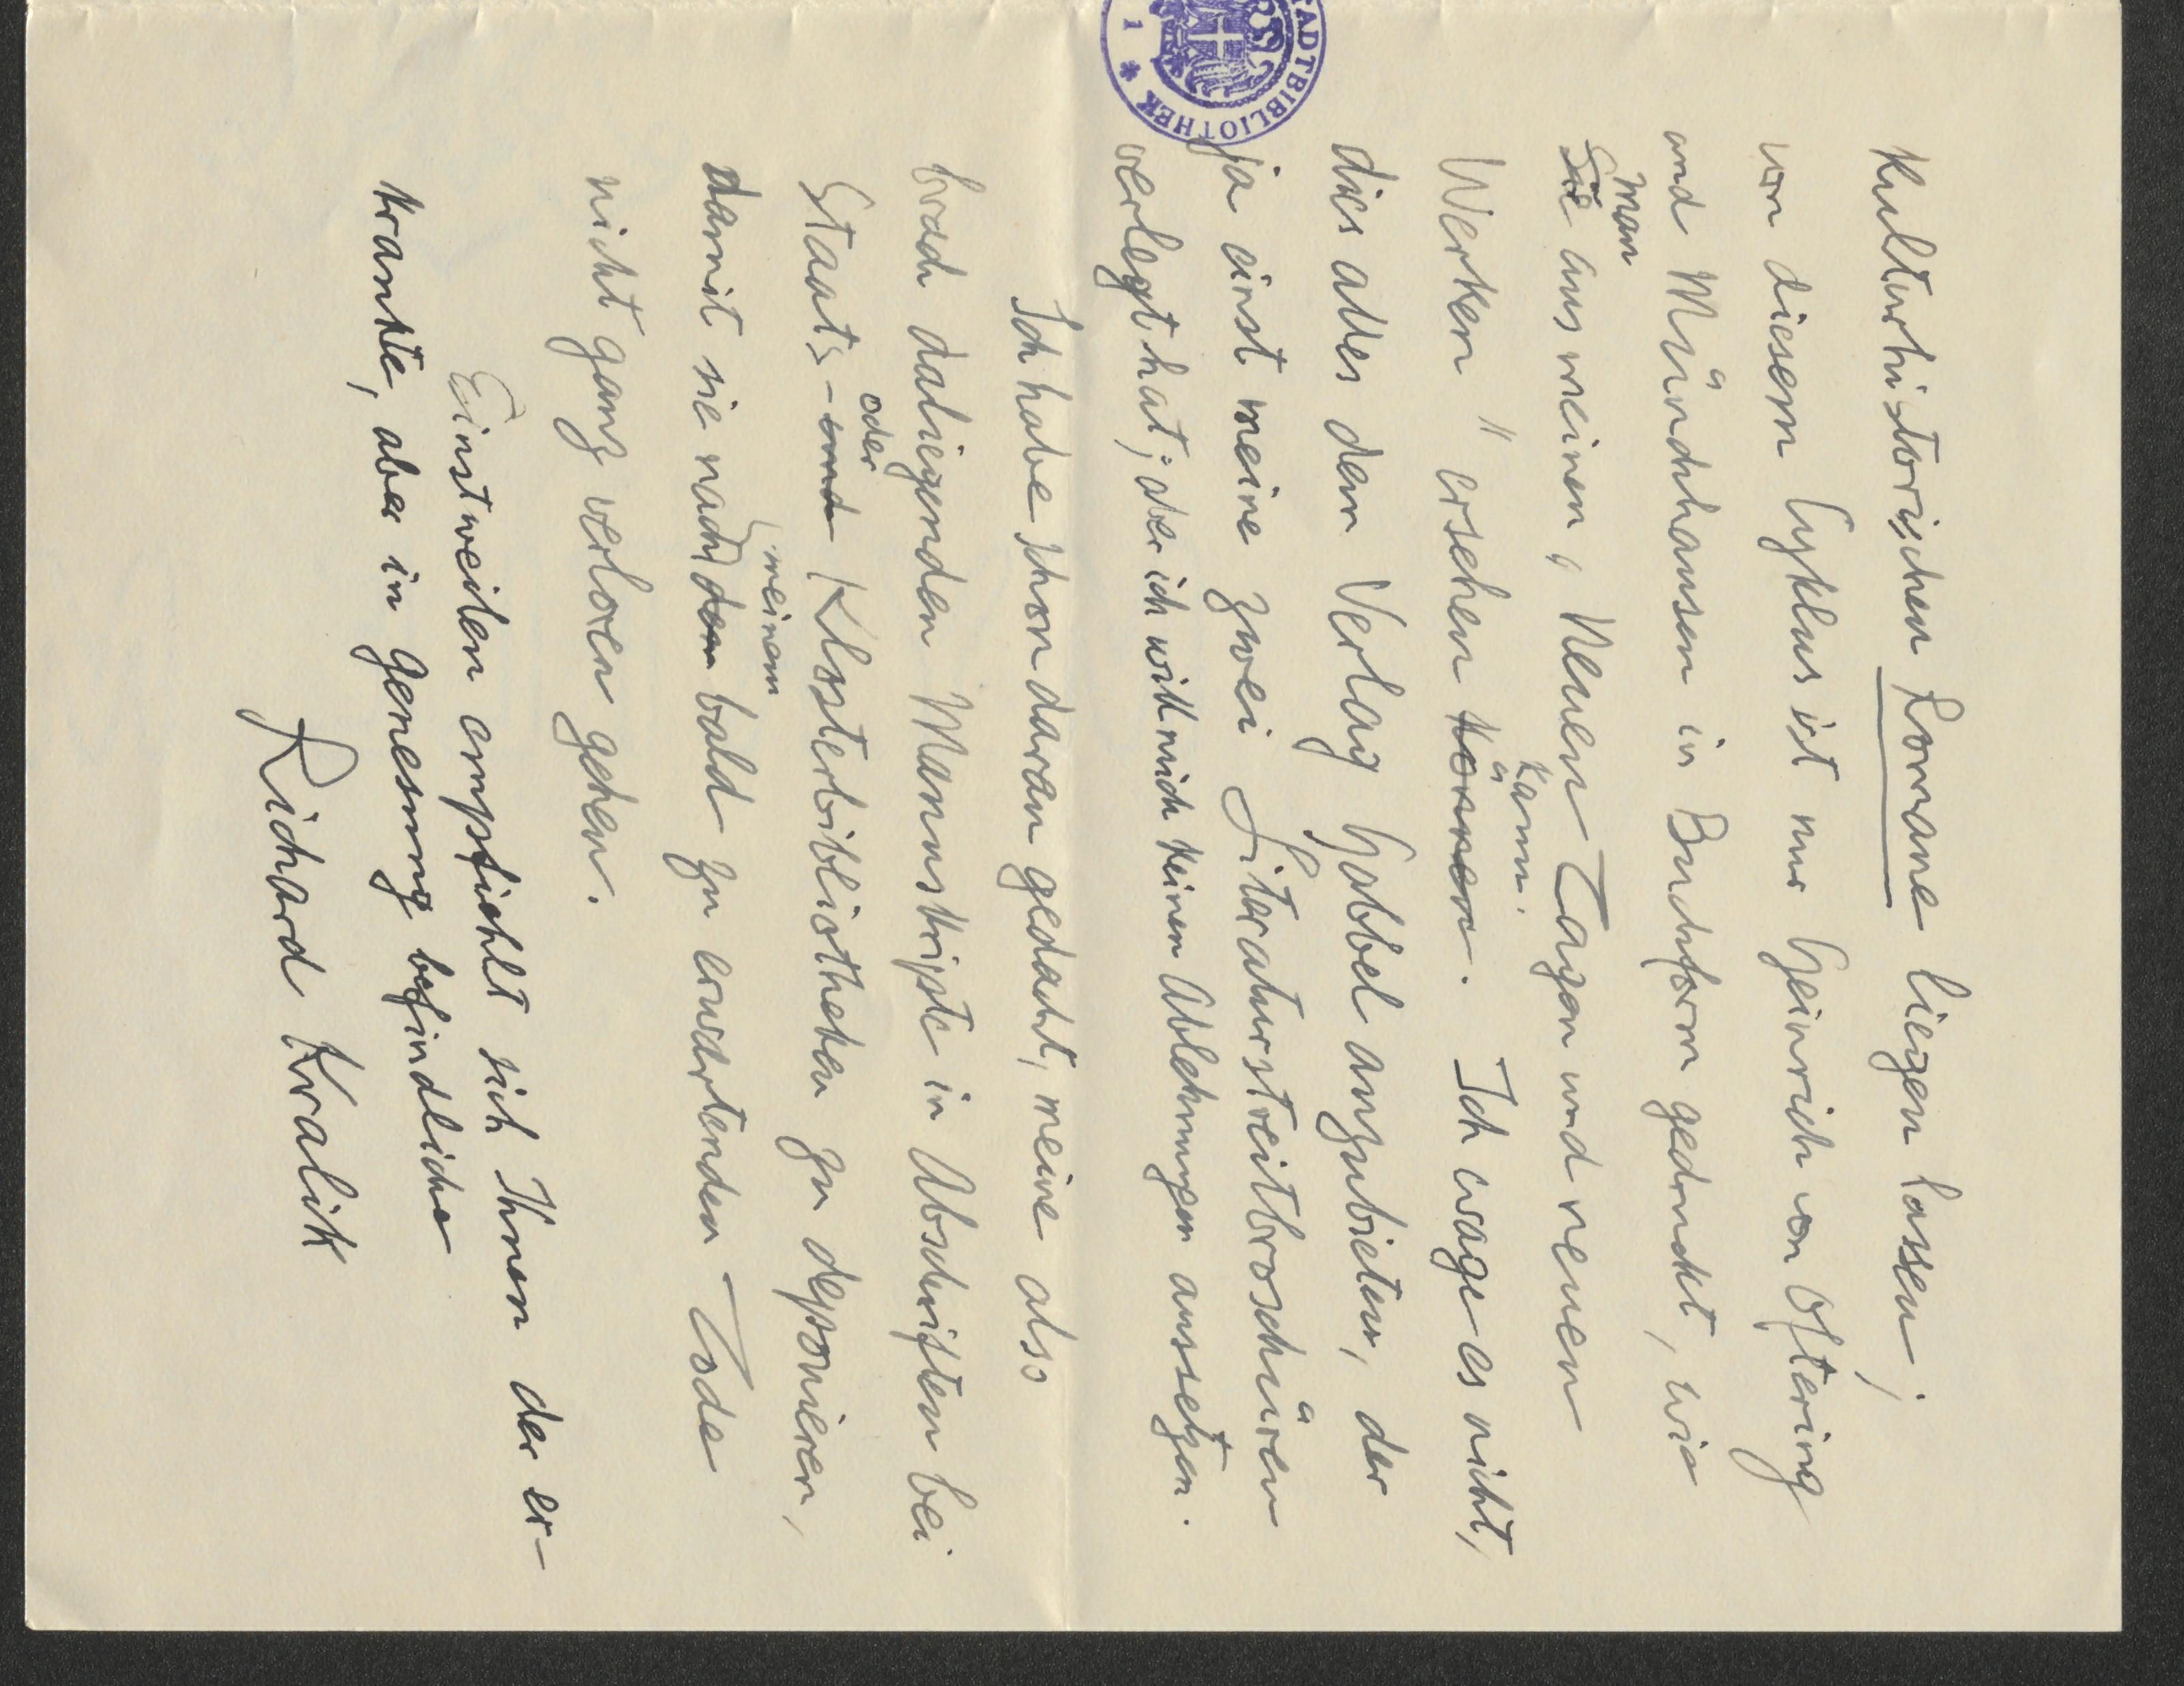 kulturhistorischen Romane liegen lassen;
von diesem Cyklus ist nur Heinrich von Oftering
und Münchhausen in Buchform gedruckt, wie
man
Sie aus meinen „Neuen Tagen und neuen
kann.
Werken" ersehen können. Ich wage es nicht,
dies alles dem Verlag Habbel anzubieten, der
ja einst meine zwei Literaturstreitbroschüren
verlegt hat; aber ich will mich keinen Ablehnungen aussetzen.
Ich habe schon daran gedacht, meine also
brach daliegenden Manuskripte in Abschriften bei
oder
Staats- und Klosterbibliotheken zu deponieren,
meinem
damit sie nach dem bald zu erwartenden Tode
nicht ganz verloren gehen.
Einstweilen empfiehlt sich Ihnen der er-
krankte, aber in Genesung befindliche
Richard Kralik
TADTBIBLIOTHEK * 1